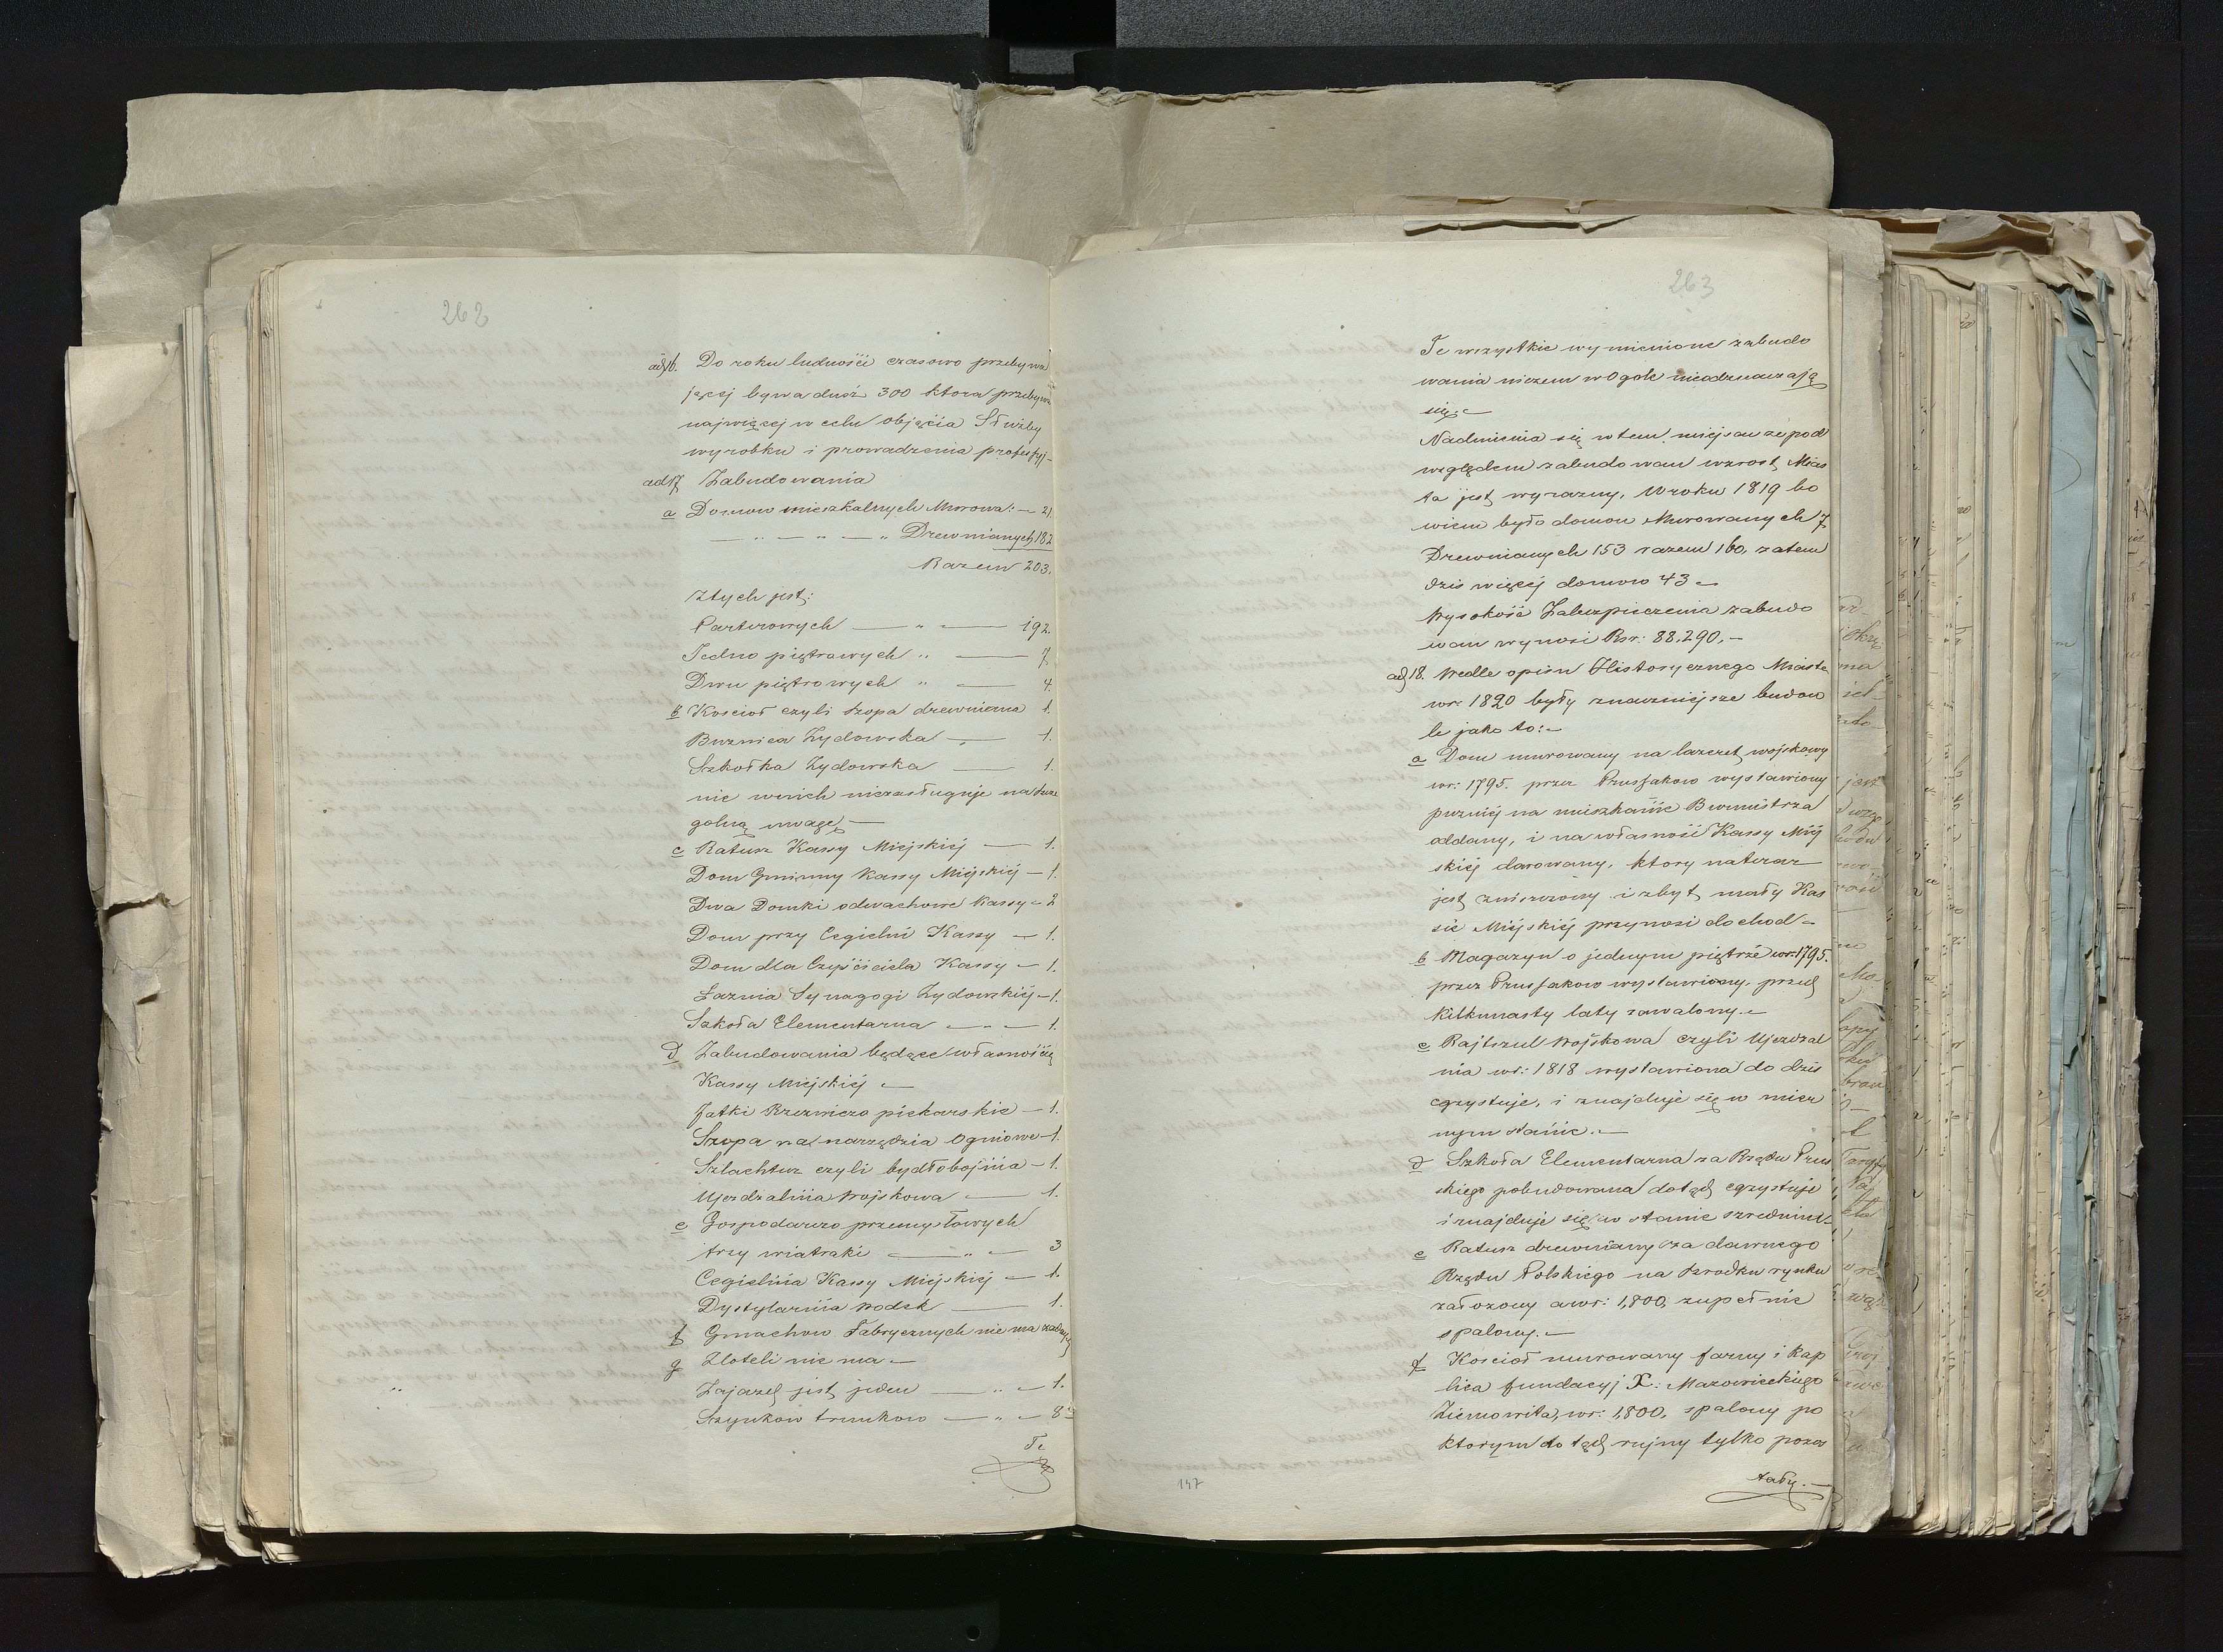 262
ad 16. Do roku ludności czasowo przebywa
jącej bywa dusz 300 ktora przebywa
najwięcej w celu objęcia Służby
wyrobku i prowadzenia professyj-
ad 17 Zabudowania
a Domow mieszkalnych Murowa: — 21.
— " — " — " Drewnianych 182
Razem 203.
Ztych jest:
Parterowych — " — 192.
Jedno piętrawych " — 7
Dwu piętrowych " — 4.
b Koscioł czyli szopa drewniana 1.
Buznica Zydowska — 1.
Szkołka Zydowska — 1.
nic wnich niezasługuje na szcze
golną uwagę —
c Ratusz Kassy Miejskiéj — 1.
Dom Gminny Kassy Miejskiéj — 1.
Dwa Domki odwachowe Kassy — 2
Dom przy Cegielni Kassy — 1.
Dom dla Czyściciela Kassy — 1.
Łaznia Synagogi Zydowskiéj — 1.
Szkoła Elementarna — " — 1.
d Zabudowania będące własnością
Kassy Miejskiéj —
Jatki Rzezniczo piekarskie — 1.
Szopa na narzędzia Ogniowe — 1.
Szlachtuz czyli bydłobojnia — 1.
Ujezdzalnia Wojskowa — 1.
e Gospodarczo przemysłowych
trzy wiatraki — " — 3
Cegielnia Kassy Miéjskiéj — 1.
Dystylarnia Wodek — 1.
f Gmachow Fabrycznych nie ma zadnych
g Hoteli nie ma —
Zajazd jest jeden — " — 1.
Szynkow trunkow — " — 8
Te
263
Te wszystkie wymienione zabudo
wania niczem w Ogole nieodznaczają
się. —
Nadmienia się w tem miejscu ze pod
względem zabudowan wzrost Mias
ta jest wyrazny, W roku 1819 bo
wiem było domow Murowanych 7
Drewnianych 153 razem 160, zatem
dzis więcéj domow 43 —
Wysokość Zabezpieczenia zabudo
wan wynosi Rsr: 88.290. —
ad 18. Wedle opisu Historycznego Miasta
wr: 1820 były znaczniéjsze budow
le jako to: —
a Dom murowany na lazaret wojskowy
wr: 1795. przez Prussakow wystawiony
pozniéj na mieszkanie Burmistrza
oddany, i na własność Kassy Miéj
skiéj darowany, ktory nateraz
jest zniszczony i zbyt mały Kas
sie Miéjskiéj przynosi dochod —
b Magazyn o jednym piętrze wr: 1795.
przez Prussakow wystawiony, przed
kilkunasty laty zawalony. —
c Rajtszul Wojskowa czyli Ujezdzal
nia wr: 1818 wystawiona do dziś
egzystuje, i znajduje się w mier
nym stanie. —
d Szkoła Elementarna za Rządu Prus
skiego pobudowana dotąd egzystuje
i znajduje się w stanie szrednim —
e Ratusz drewniany za dawnego
Rządu Polskiego na szrodku rynku
załozony a wr: 1,800, zupełnie
spalony. —
f Kosciół murowany farny i kap
lica fundacyj X: Mazowieckiego
Ziemowita, wr: 1,800. spalony po
ktorym do tąd rujny tylko pozos
tały. —
147